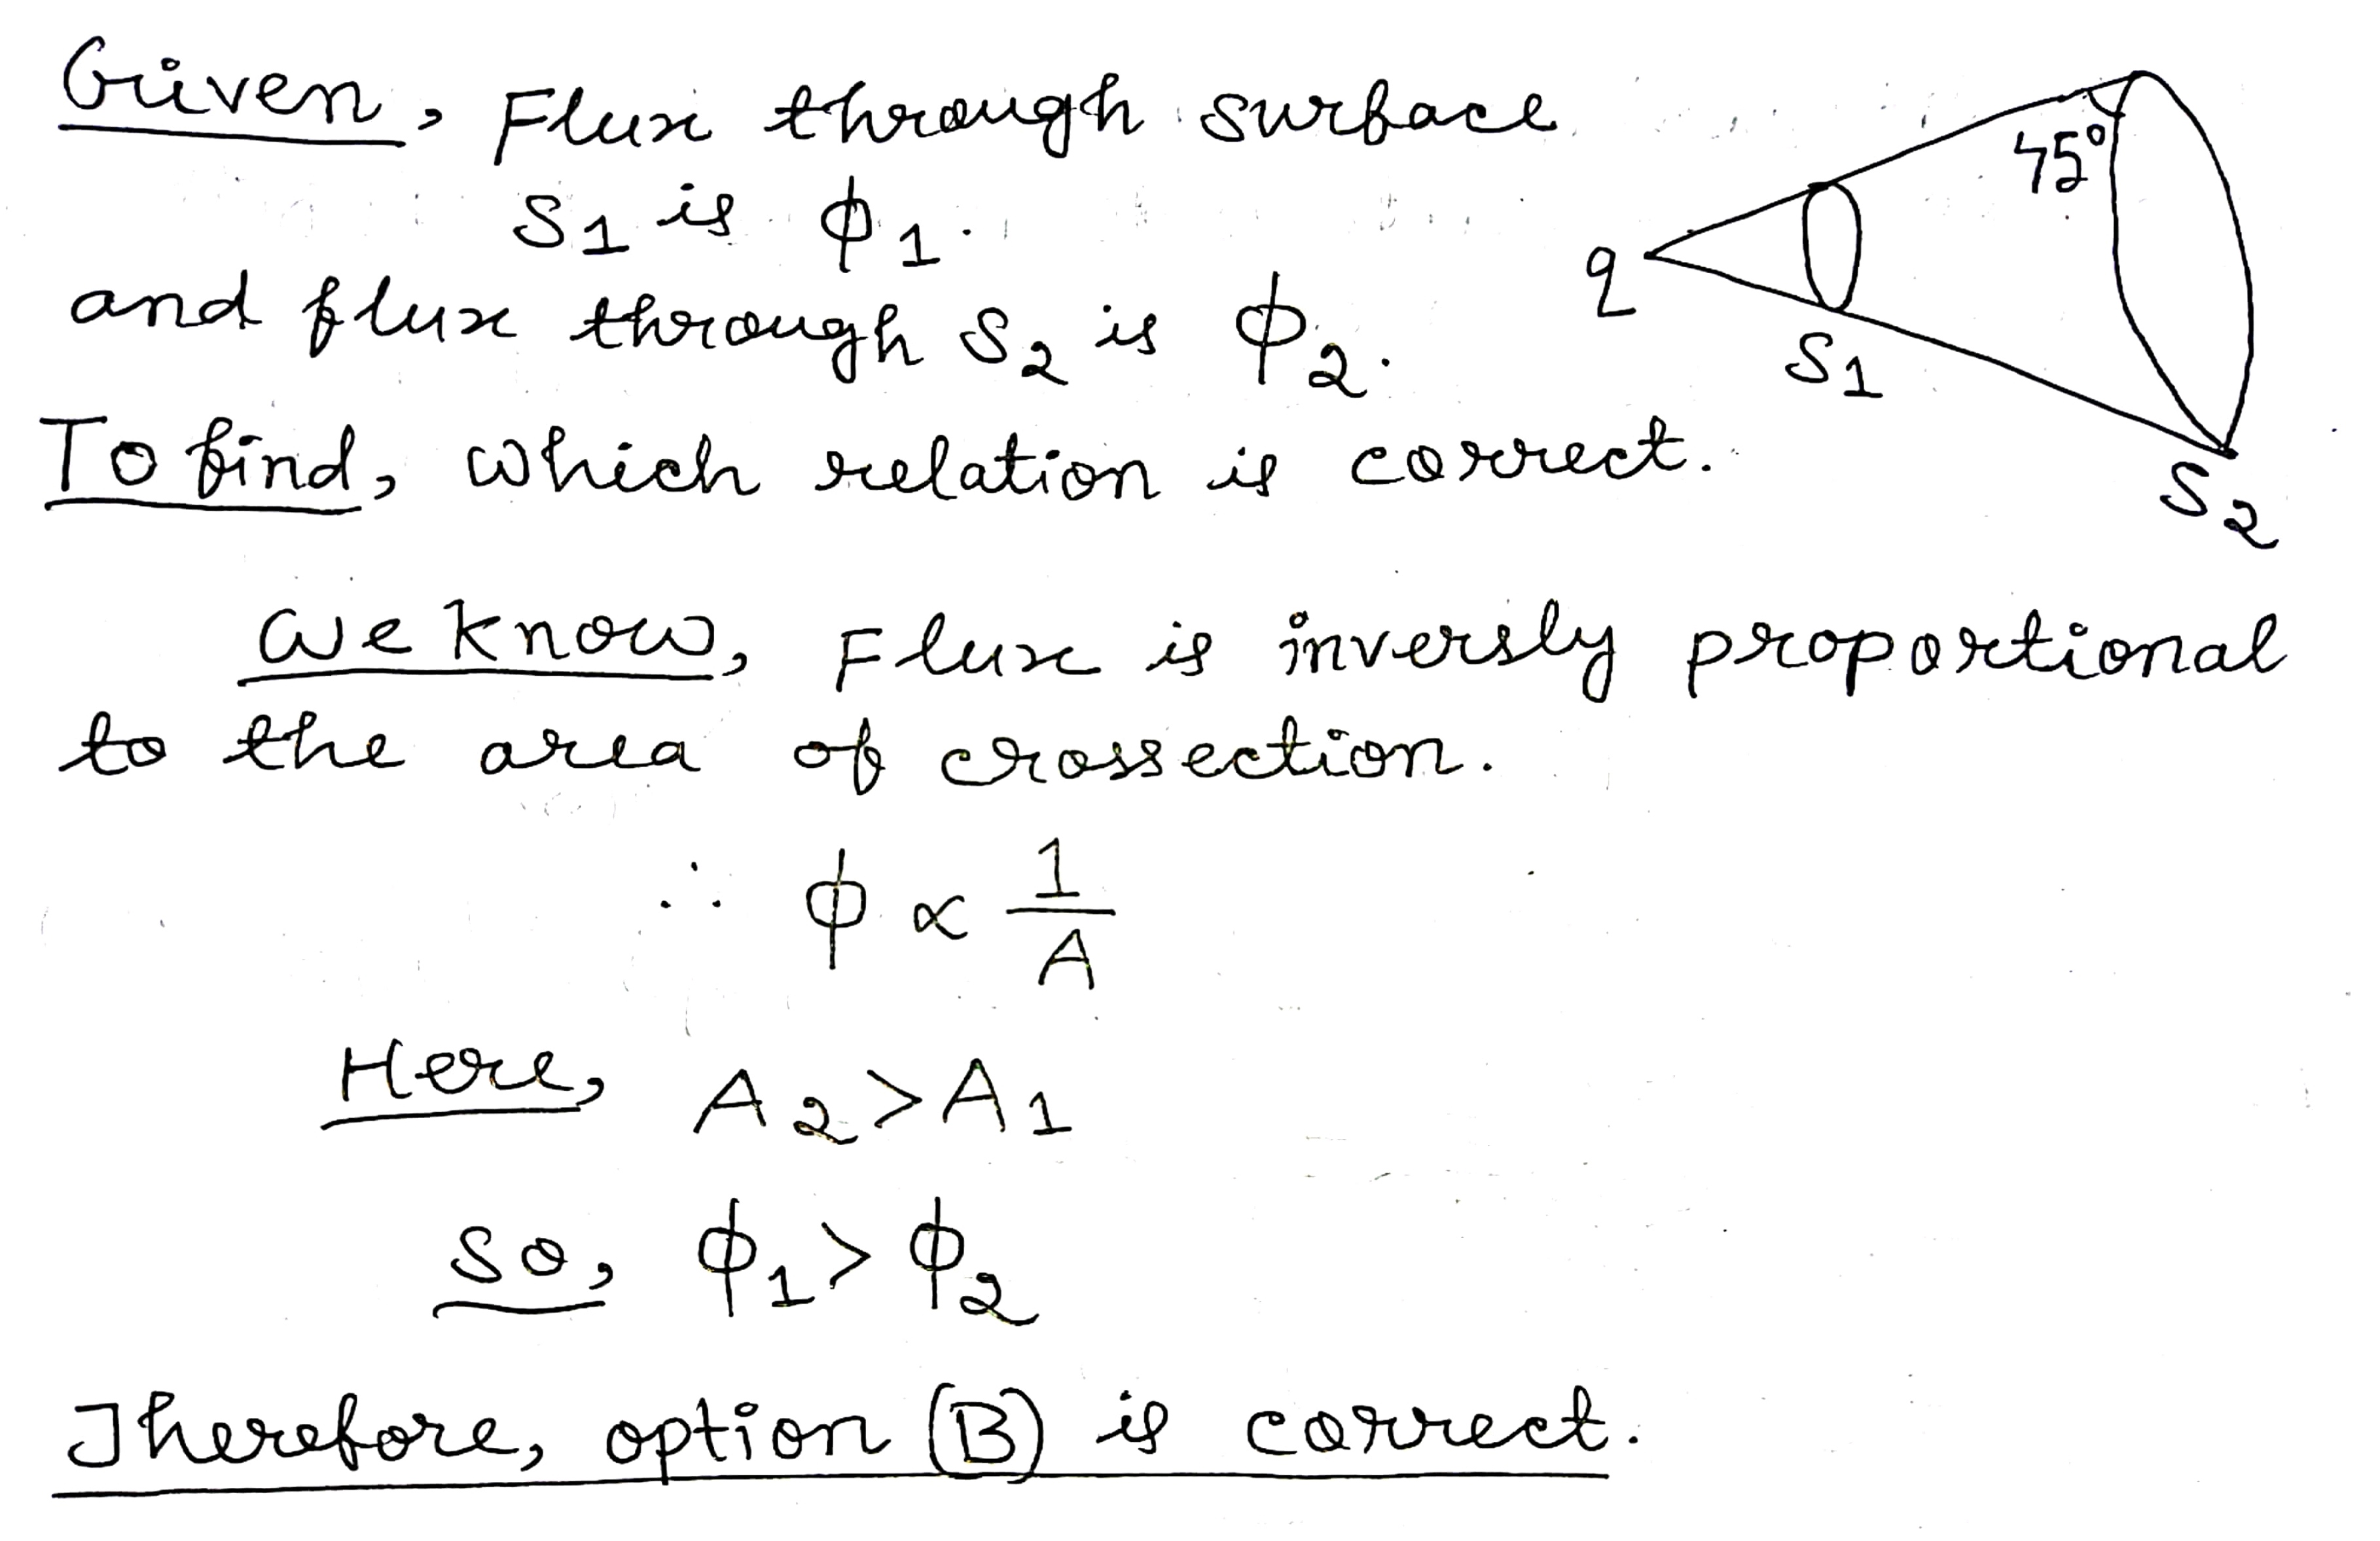 Given, Flux through surface
S1 is ϕ1.
and flux through S2 is ϕ2.
To find, which relation is correct.
45°
q
S1
S2
We know, Flux is inversly proportional
to the area of crossection.
∴ ϕ ∝ 1/A
Here, A2 > A1
So, ϕ1 > ϕ2
Therefore, option (B) is correct.